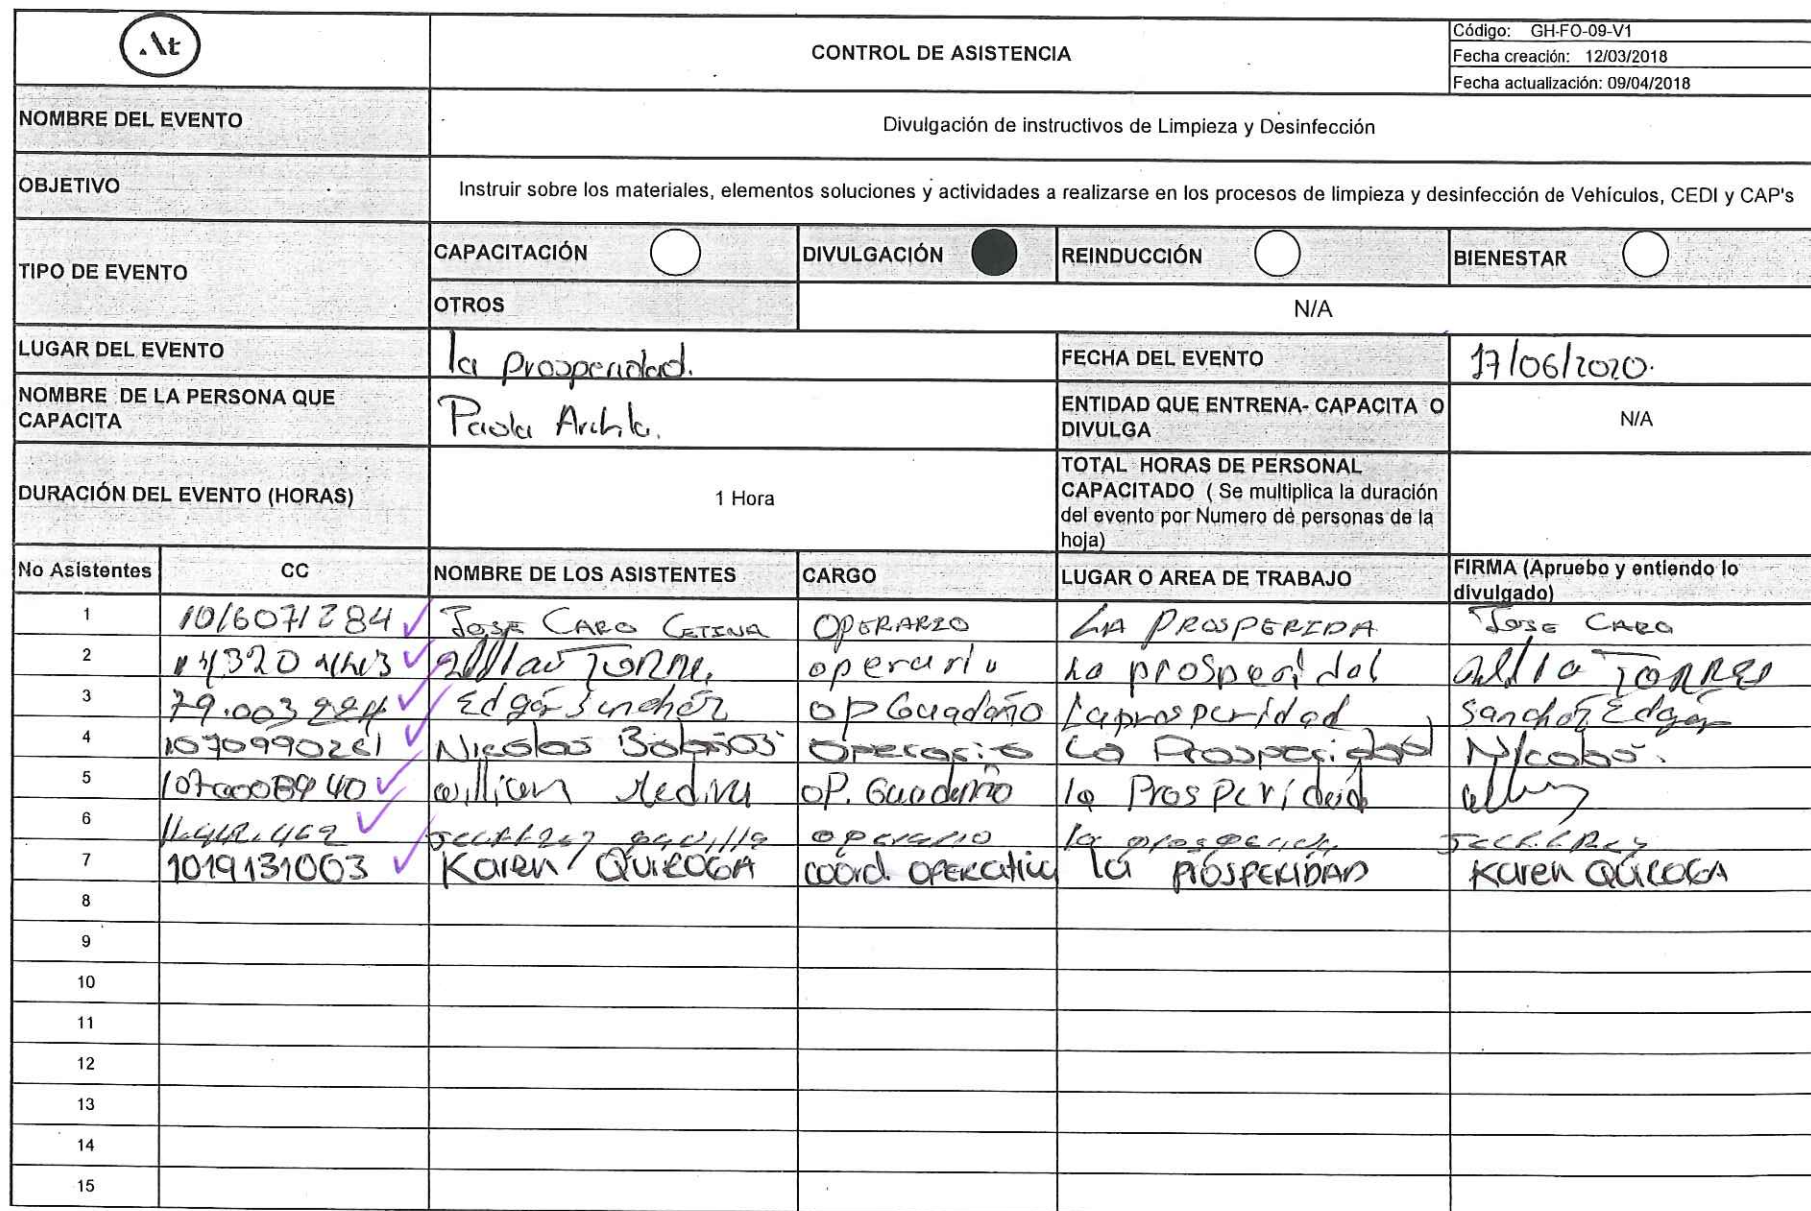 At
CONTROL DE ASISTENCIA
Código: GH-FO-09-V1
Fecha creación: 12/03/2018
Fecha actualización: 09/04/2018
NOMBRE DEL EVENTO
Divulgación de instructivos de Limpieza y Desinfección
OBJETIVO
Instruir sobre los materiales, elementos soluciones y actividades a realizarse en los procesos de limpieza y desinfección de Vehículos, CEDI y CAP's
TIPO DE EVENTO
CAPACITACIÓN
DIVULGACIÓN
REINDUCCIÓN
BIENESTAR
OTROS
N/A
LUGAR DEL EVENTO
la prosperidad.
FECHA DEL EVENTO
17/06/2020.
NOMBRE DE LA PERSONA QUE
CAPACITA
Paola Archila.
ENTIDAD QUE ENTRENA- CAPACITA O
DIVULGA
N/A
DURACIÓN DEL EVENTO (HORAS)
1 Hora
TOTAL HORAS DE PERSONAL
CAPACITADO ( Se multiplica la duración
del evento por Numero de personas de la
hoja)
No Asistentes CC NOMBRE DE LOS ASISTENTES CARGO LUGAR O AREA DE TRABAJO FIRMA (Apruebo y entiendo lo
divulgado)
1 1016071284 JOSE CARO CETINA OPERARIO LA PROSPERIDA JOSE CARO
2 operario La prosperidad TORRES
3 Edgar Sanchez OP Guadaño La prosperidad Sanchez Edgar
4 1070990261 Nicolas Bolaños Operario La Prosperidad Nicolas.
5 william Medina OP. Guadaño la Prosperidad
6 operario la
7 1019131003 Karen QUIROGA coord. OPERativa la PROSPERIDAD Karen QUIROGA
8
9
10
11
12
13
14
15